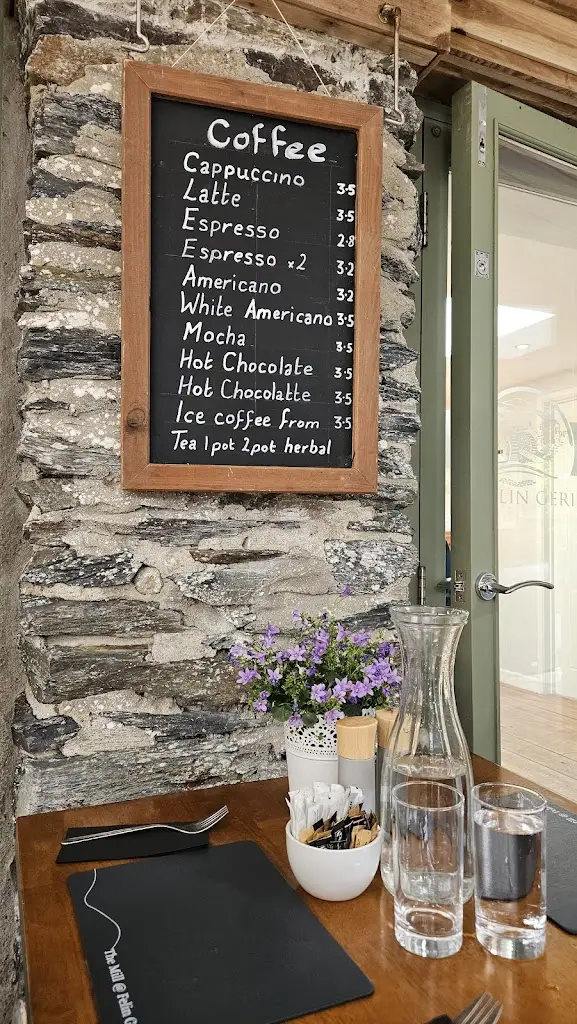 Coffee
Cappuccino 3.5
Latte 3.5
Espresso 2.8
Espresso x2 3.2
Americano 3.2
White Americano 3.5
Mocha 3.5
Hot Chocolate 3.5
Hot Chocolatte 3.5
Ice coffee from 3.5
Tea 1 pot 2 pot herbal
LIN GERI
The Mill @ Felin G